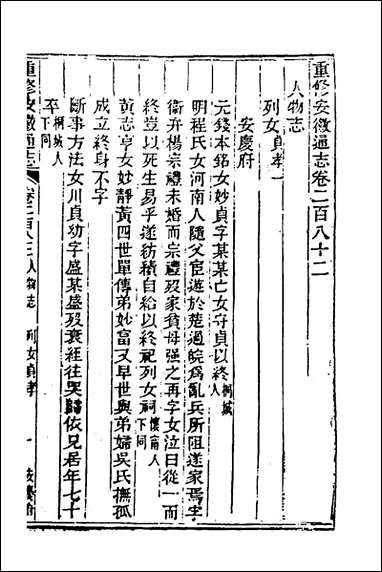 重修安徽通志卷二百八十二
人物志
列女貞孝一
安慶府
元錢本銘女妙貞字某某亡女守貞以終桐城人
明程氏女河南人隨父宦遊於楚過皖為亂兵所阻遂家焉字
衞弁楊宗禮未婚而宗禮歿家貧母强之再字女泣曰從一而
終豈以死生易乎遂紡績自給以終祀列女祠懷甯人下同
黃志亨女妙靜黃四世單傳弟妙富又早世與弟婦吳氏撫孤
成立終身不字
斷事方法女川貞幼字盛某盛歿衰絰往哭歸依兄居年七十
卒桐城人下同
重修安徽通志 卷二百八二 人物志 列女貞孝 一